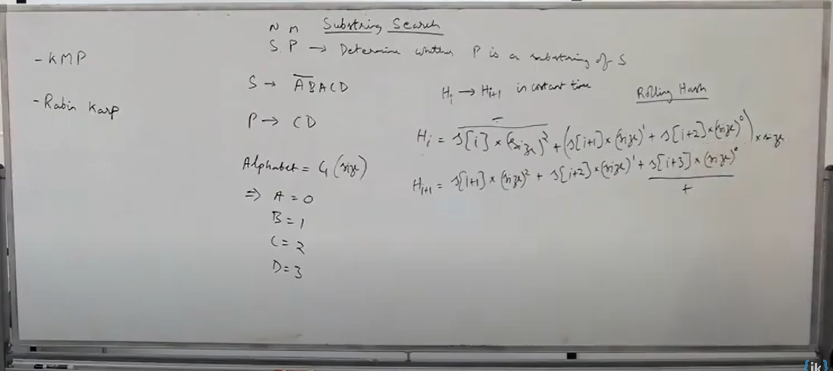 Substring Search
N M
S P → Determine whether P is a substring of S
- KMP
- Rabin Karp
S → ABACD
P → CD
Alphabet = 4 (size)
⇒ A = 0
B = 1
C = 2
D = 3
Hi → Hi+1 in constant time
Rolling Hash
Hi = s[i] × (size)² + (s[i+1] × (size)¹ + s[i+2] × (size)⁰) × size
Hi+1 = s[i+1] × (size)² + s[i+2] × (size)¹ + s[i+3] × (size)⁰
−
+
ik